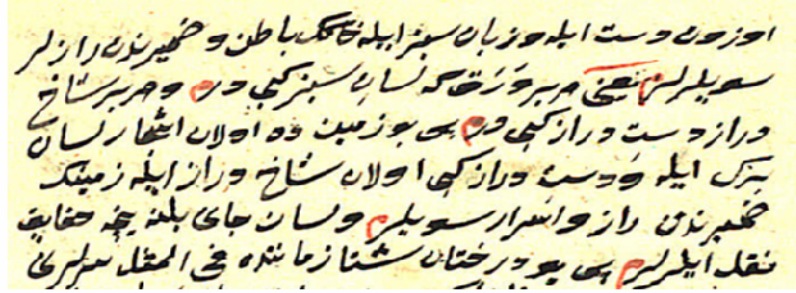 اوزون دست ایله و زبان سبز ایله خاکك باطن و ضمیرندن رازلر
سویلرلر یعنی هر بر ورقه که لسان سبز کبی در و هر بر شاخ
دراز دست دراز کبی در بس بو زمین ده اولان اشجار لسان
برك ایله و دست دراز کبی اولان شاخ دراز ایله زمینك
ضمیرندن راز و اسرار سویلر و لسان حالی بلنه نیجه حقایق
نقل ایلرلر بس بو درختان شتا زماننده فی المثل